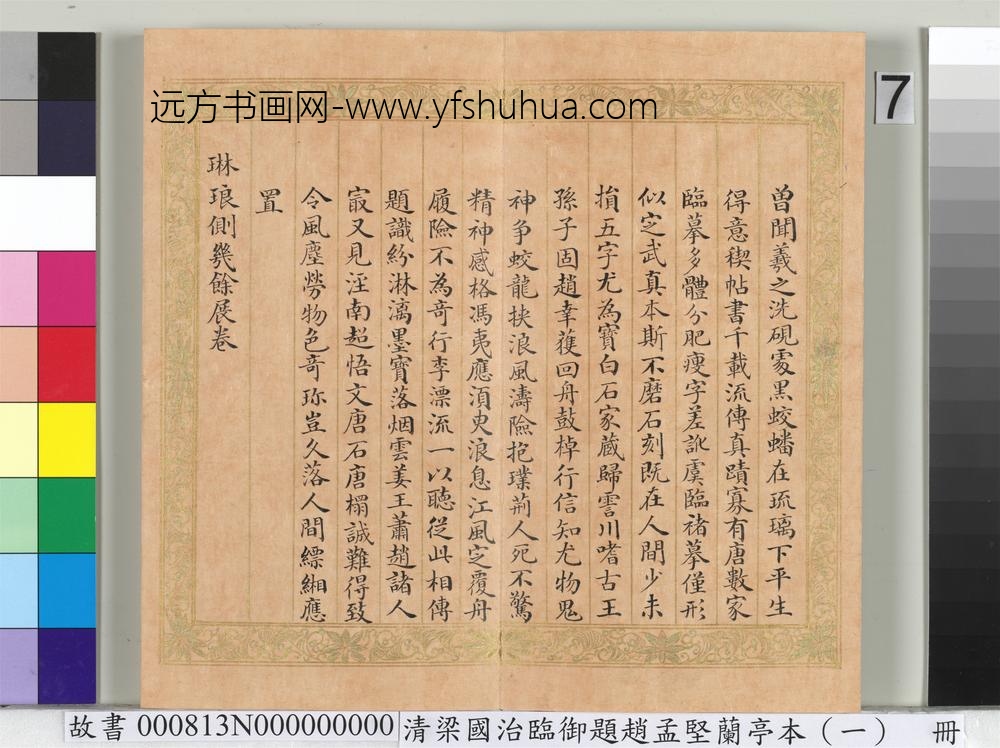 远方书画网-www.yfshuhua.com
7
曽聞羲之洗硯處黑蛟蟠在琉璃下平生
得意稧帖書千載流傳真蹟寡有唐數家
臨摹多體分肥瘦字差訛虞臨褚摹僅形
似定武真本斯不磨石刻既在人間少未
損五字尤為寶白石家蔵歸霅川嗜古王
孫子固趙幸獲回舟鼓棹行信知尤物鬼
神争蛟龍挟浪風濤險抱璞荊人死不驚
精神感格馮夷應湏臾浪息江風定覆舟
履險不為竒行李漂流一以聽従此相傳
題識紛淋漓墨寶落烟雲姜王蕭趙諸人
㝡又見汪南超悟文唐石唐榻誠難得致
令風塵勞物色竒珎豈久落人間縹緗應
置
琳琅側㡬餘展卷
故書 000813N000000000 清梁國治臨御題趙孟堅蘭亭本（一） 冊